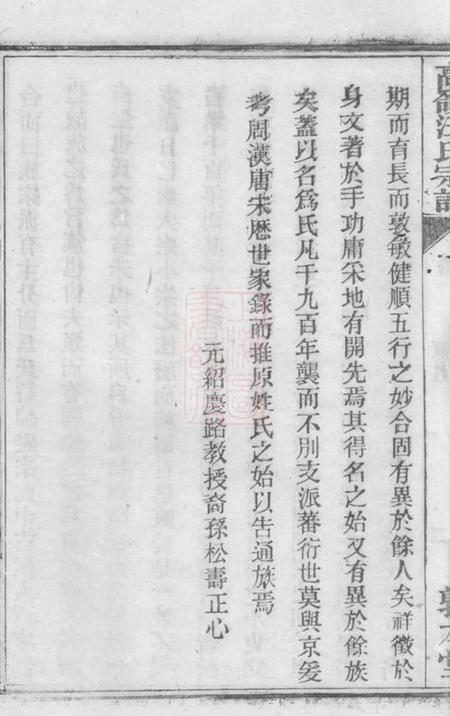 期而有長而敦敏健順五行之妙合固有異於餘人矣祥徵於
身文著於手功庸采地有開先焉其得名之始又有異於餘族
矣蓋以名爲氏凡千九百年襲而不別支派蕃衍世莫與京爰
考周漢唐宋歷世家錄而推原姓氏之始以告通族焉
元紹慶路教授裔孫松壽正心